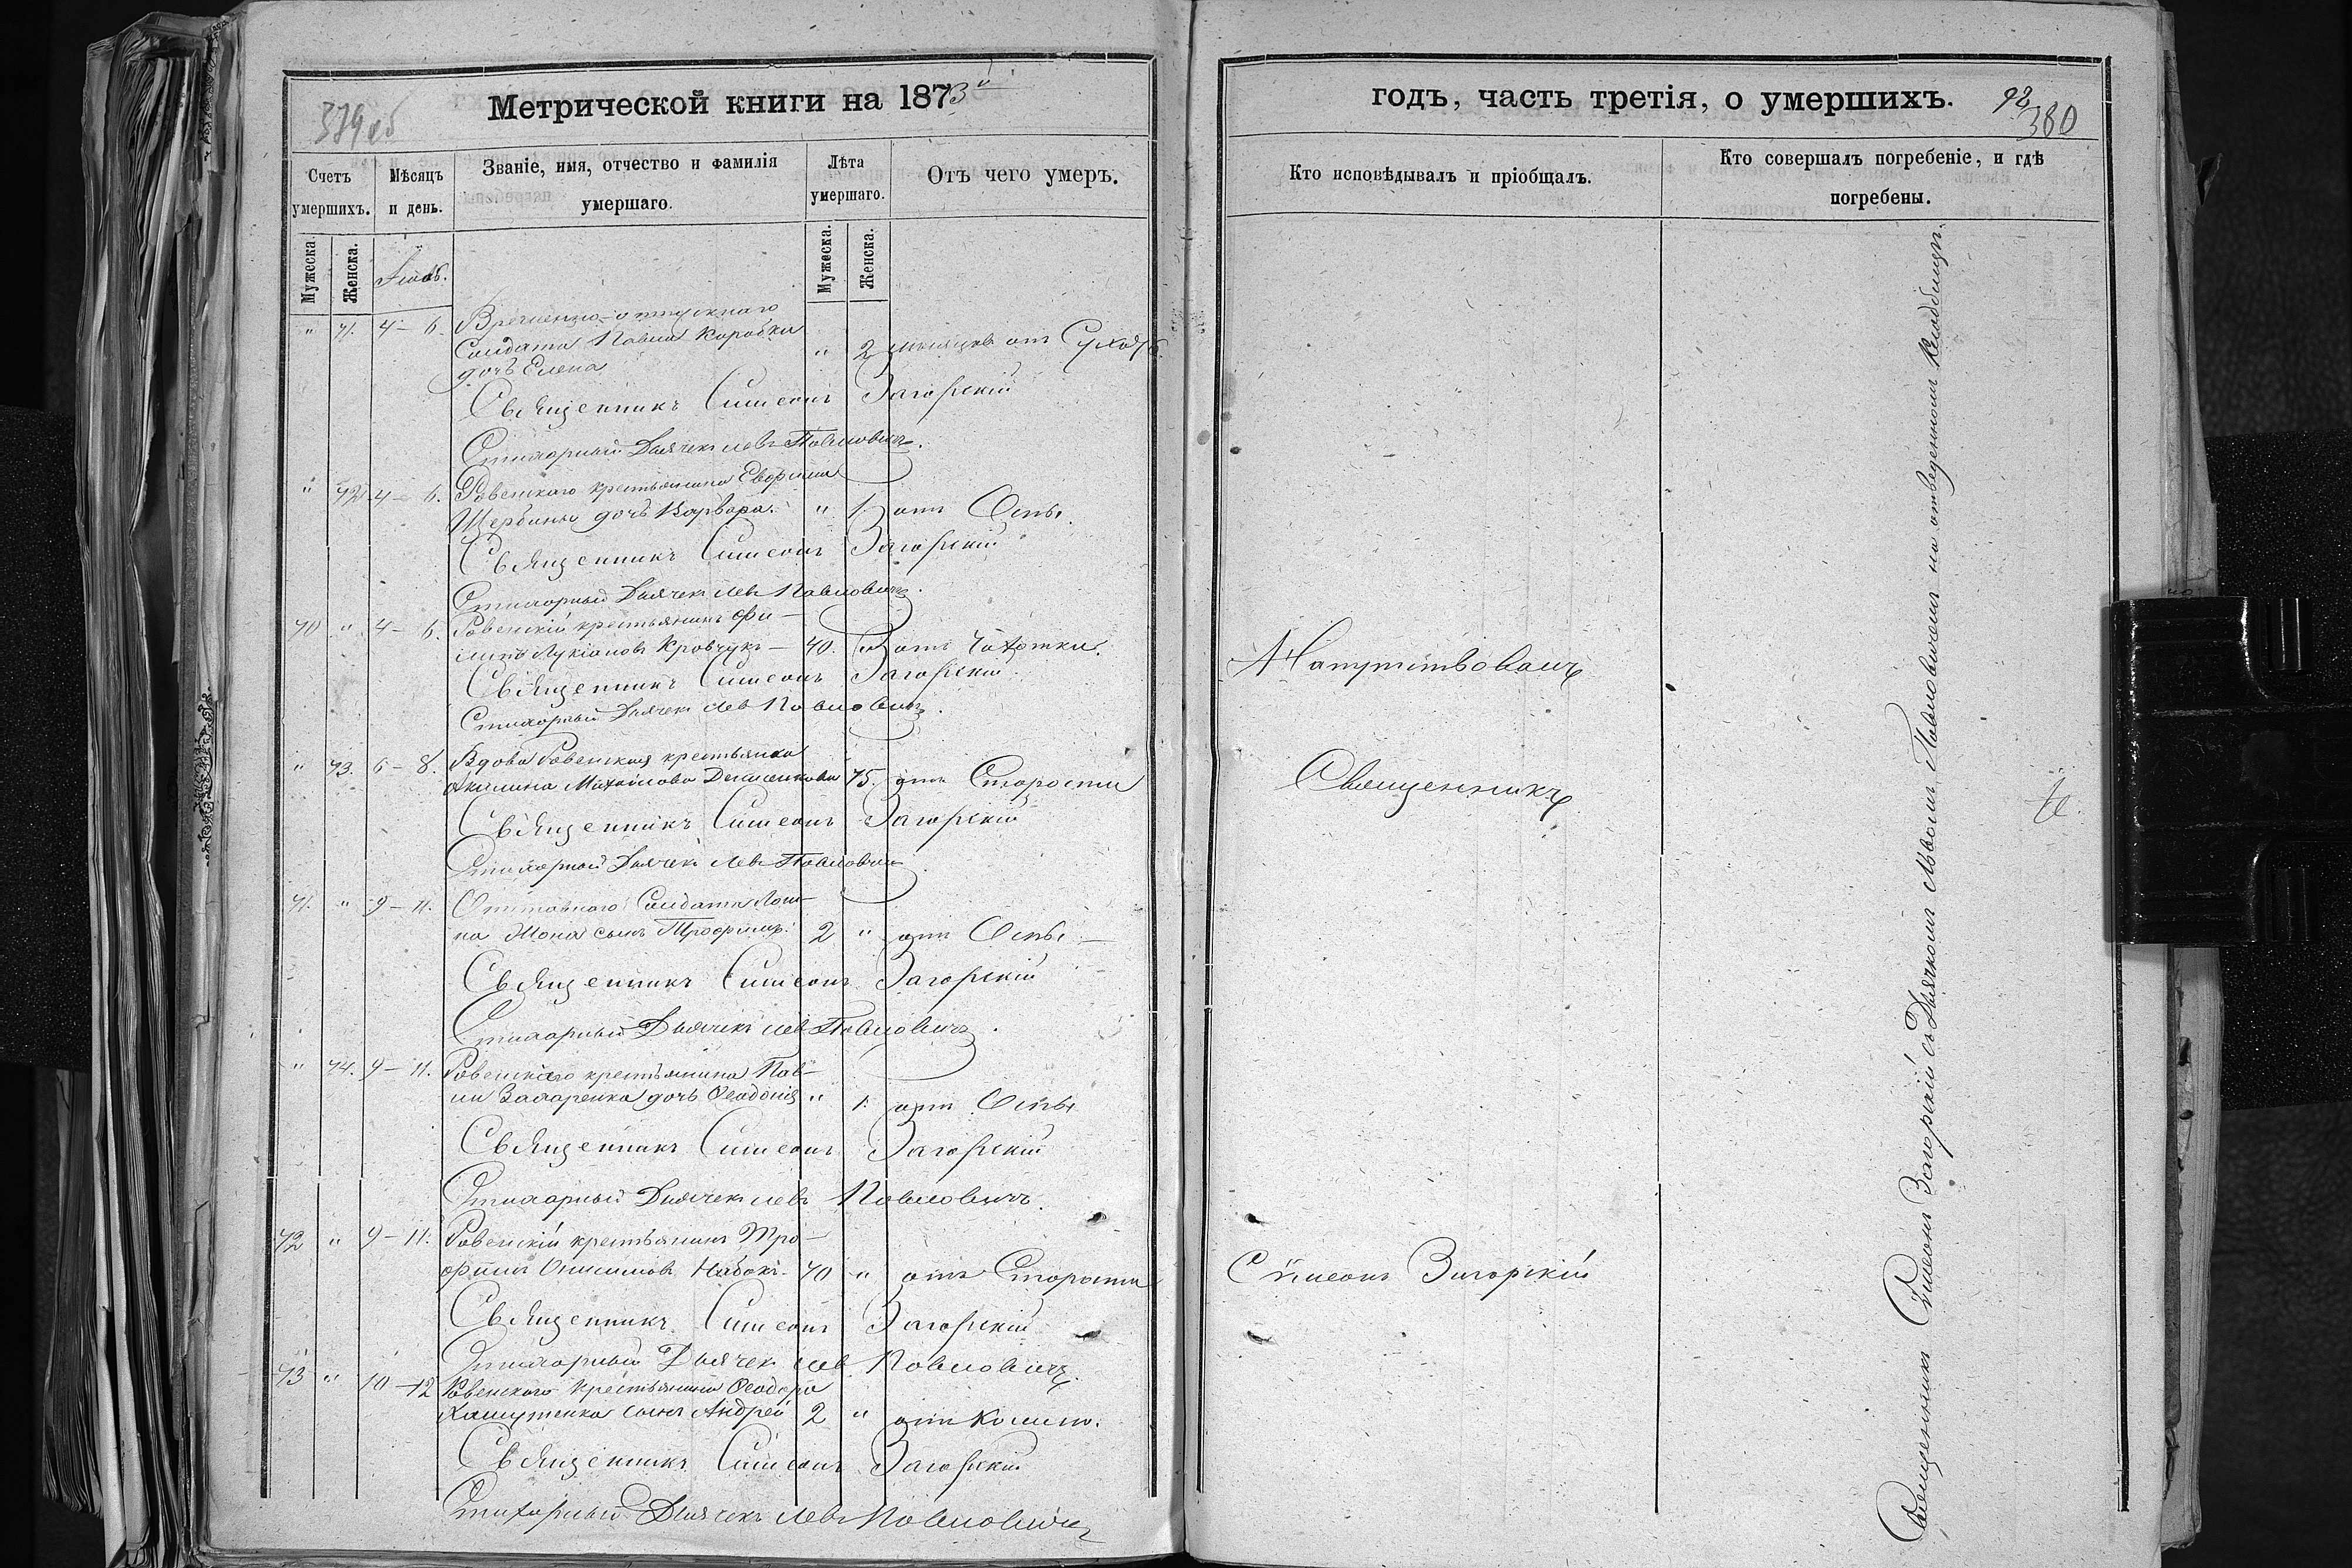 379 об
Метрической книги на 1873й
Счетъ умершихъ.
Мѣсяцъ и день.
Званіе, имя, отчество и фамилія умершаго.
Лѣта умершаго.
Отъ чего умеръ.
Мужеска.
Женска.
Мужеска.
Женска.
" 71. 4 – 6. Временно-отпускнаго
Солдата Павла Коробки " 2 мѣсяцевъ отъ Сухотъ
дочь Елена
Священникъ Симеонъ Загорскій
Стихарный Дьячекъ Левъ Павловичъ.
" 72. 4 – 6. Ровенскаго крестьянина
Щербины дочь Варвара. " 1. отъ Оспы.
Священникъ Симеонъ Загорскій
Стихарный Дьячекъ Левъ Павловичъ.
70 " 4 – 6. Ровенскій крестьянинъ Фи–
липъ Лукіановъ Кравчукъ – 40. " отъ Чахотки.
Священникъ Симеонъ Загорскій.
Стихарный Дьячекъ Левъ Павловичъ.
" 73. 6 – 8. Вдова Ровенская крестьянка
Акилина Михайлова 75. отъ Старости
Священникъ Симеонъ Загорскій
Стихарный Дьячекъ Левъ Павловичъ.
71. " 9 – 11. Отставного Солдата
сынъ Трофимъ. 2 " отъ Оспы –
Священникъ Симеонъ Загорскій
Стихарный Дьячекъ Левъ Павловичъ.
" 74. 9 – 11. Ровенскаго крестьянина Пав–
ла дочь Феодосія " 1. отъ Оспы
Священникъ Симеонъ Загорскій
Стихарный Дьячекъ Левъ Павловичъ.
72 " 9 – 11. Ровенскій крестьянинъ Тро–
фимъ Онисимовъ Набокъ. 70 " отъ Старости
Священникъ Симеонъ Загорскій
Стихарный Дьячекъ Левъ Павловичъ.
73 " 10 – 12 Ровенскаго крестьянина Феодора
сынъ Андрей 2 " отъ
Священникъ Симеонъ Загорскій
Стихарный Дьячекъ Левъ Павловичъ
годъ, часть третія, о умершихъ.
92
380
Кто исповѣдывалъ и пріобщалъ.
Кто совершалъ погребеніе, и гдѣ
погребены.
Напутствовалъ
Священникъ
Симеонъ Загорскій
Священникъ Симеонъ Загорскій съ Дьячкомъ Львомъ Павловичемъ на отведенномъ Кладбищѣ.